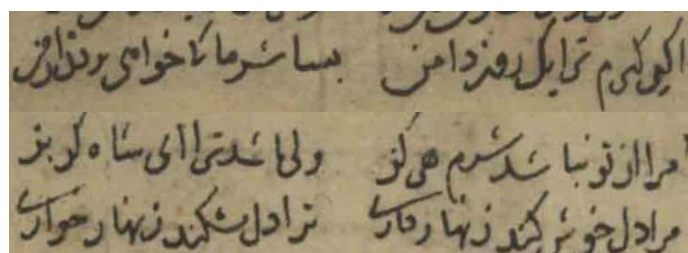 اکر کیرم ترا یک روز دامن بسا شرما کا خواهی بردن از من
مرا از تو نباشد شرم هرکز ولی باشد ترا ای شاه کربز
مرا دل خوش کند زنهار داری ترا دل بشکند زنهار خواری